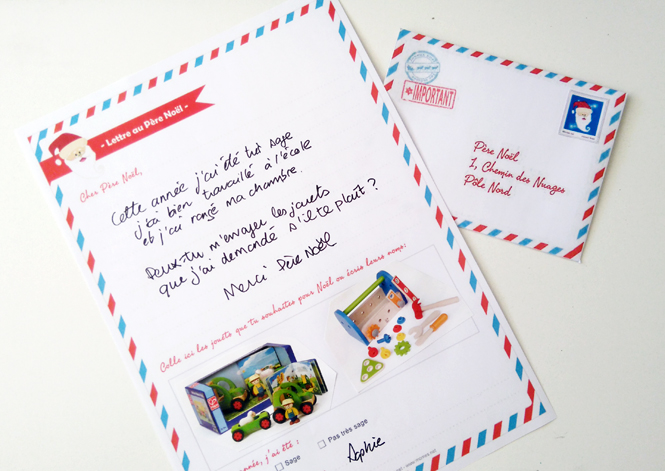 - Lettre au Père Noël -
Cher Père Noël,
Cette année j'ai été très sage
j'ai bien travaillé à l'école
et j'ai rangé ma chambre.
Peux-tu m'envoyer les jouets
que j'ai demandé s'il te plaît ?
Merci Père Noël
Colle ici les jouets que tu souhaites pour Noël ou écris leurs noms:
année, j'ai été :
Sage
Pas très sage
Sophie
IMPORTANT
Père Noël
1, Chemin des Nuages
Pôle Nord